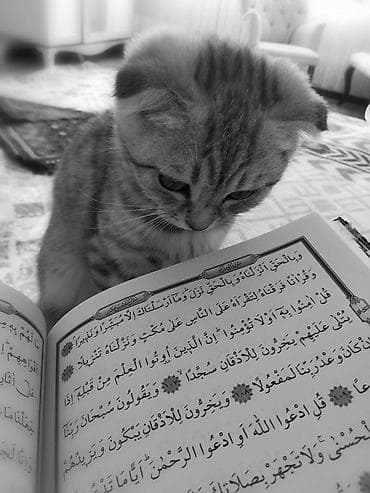 وَبِالْحَقِّ اَنْزَلْنَاهُ وَبِالْحَقِّ نَزَلَ وَمَٓا اَرْسَلْنَاكَ اِلَّا مُبَشِّرًا وَنَذِيرًا
وَقُرْاٰنًا فَرَقْنَاهُ لِتَقْرَاَهُ عَلَى النَّاسِ عَلٰى مُكْثٍ وَنَزَّلْنَاهُ تَنْزِيلًا
قُلْ اٰمِنُوا بِهٖٓ اَوْ لَا تُؤْمِنُوا اِنَّ الَّذِينَ اُوتُوا الْعِلْمَ مِنْ قَبْلِهٖٓ اِذَا
يُتْلٰى عَلَيْهِمْ يَخِرُّونَ لِلْاَذْقَانِ سُجَّدًا وَيَقُولُونَ سُبْحَانَ رَبِّنَٓا
اِنْ كَانَ وَعْدُ رَبِّنَا لَمَفْعُولًا وَيَخِرُّونَ لِلْاَذْقَانِ يَبْكُونَ وَيَزِيدُهُمْ
عًا قُلِ ادْعُوا اللّٰهَ اَوِ ادْعُوا الرَّحْمٰنَ اَيًّا مَا تَدْ
الْحُسْنٰى وَلَا تَجْهَرْ بِصَلَاتِكَ